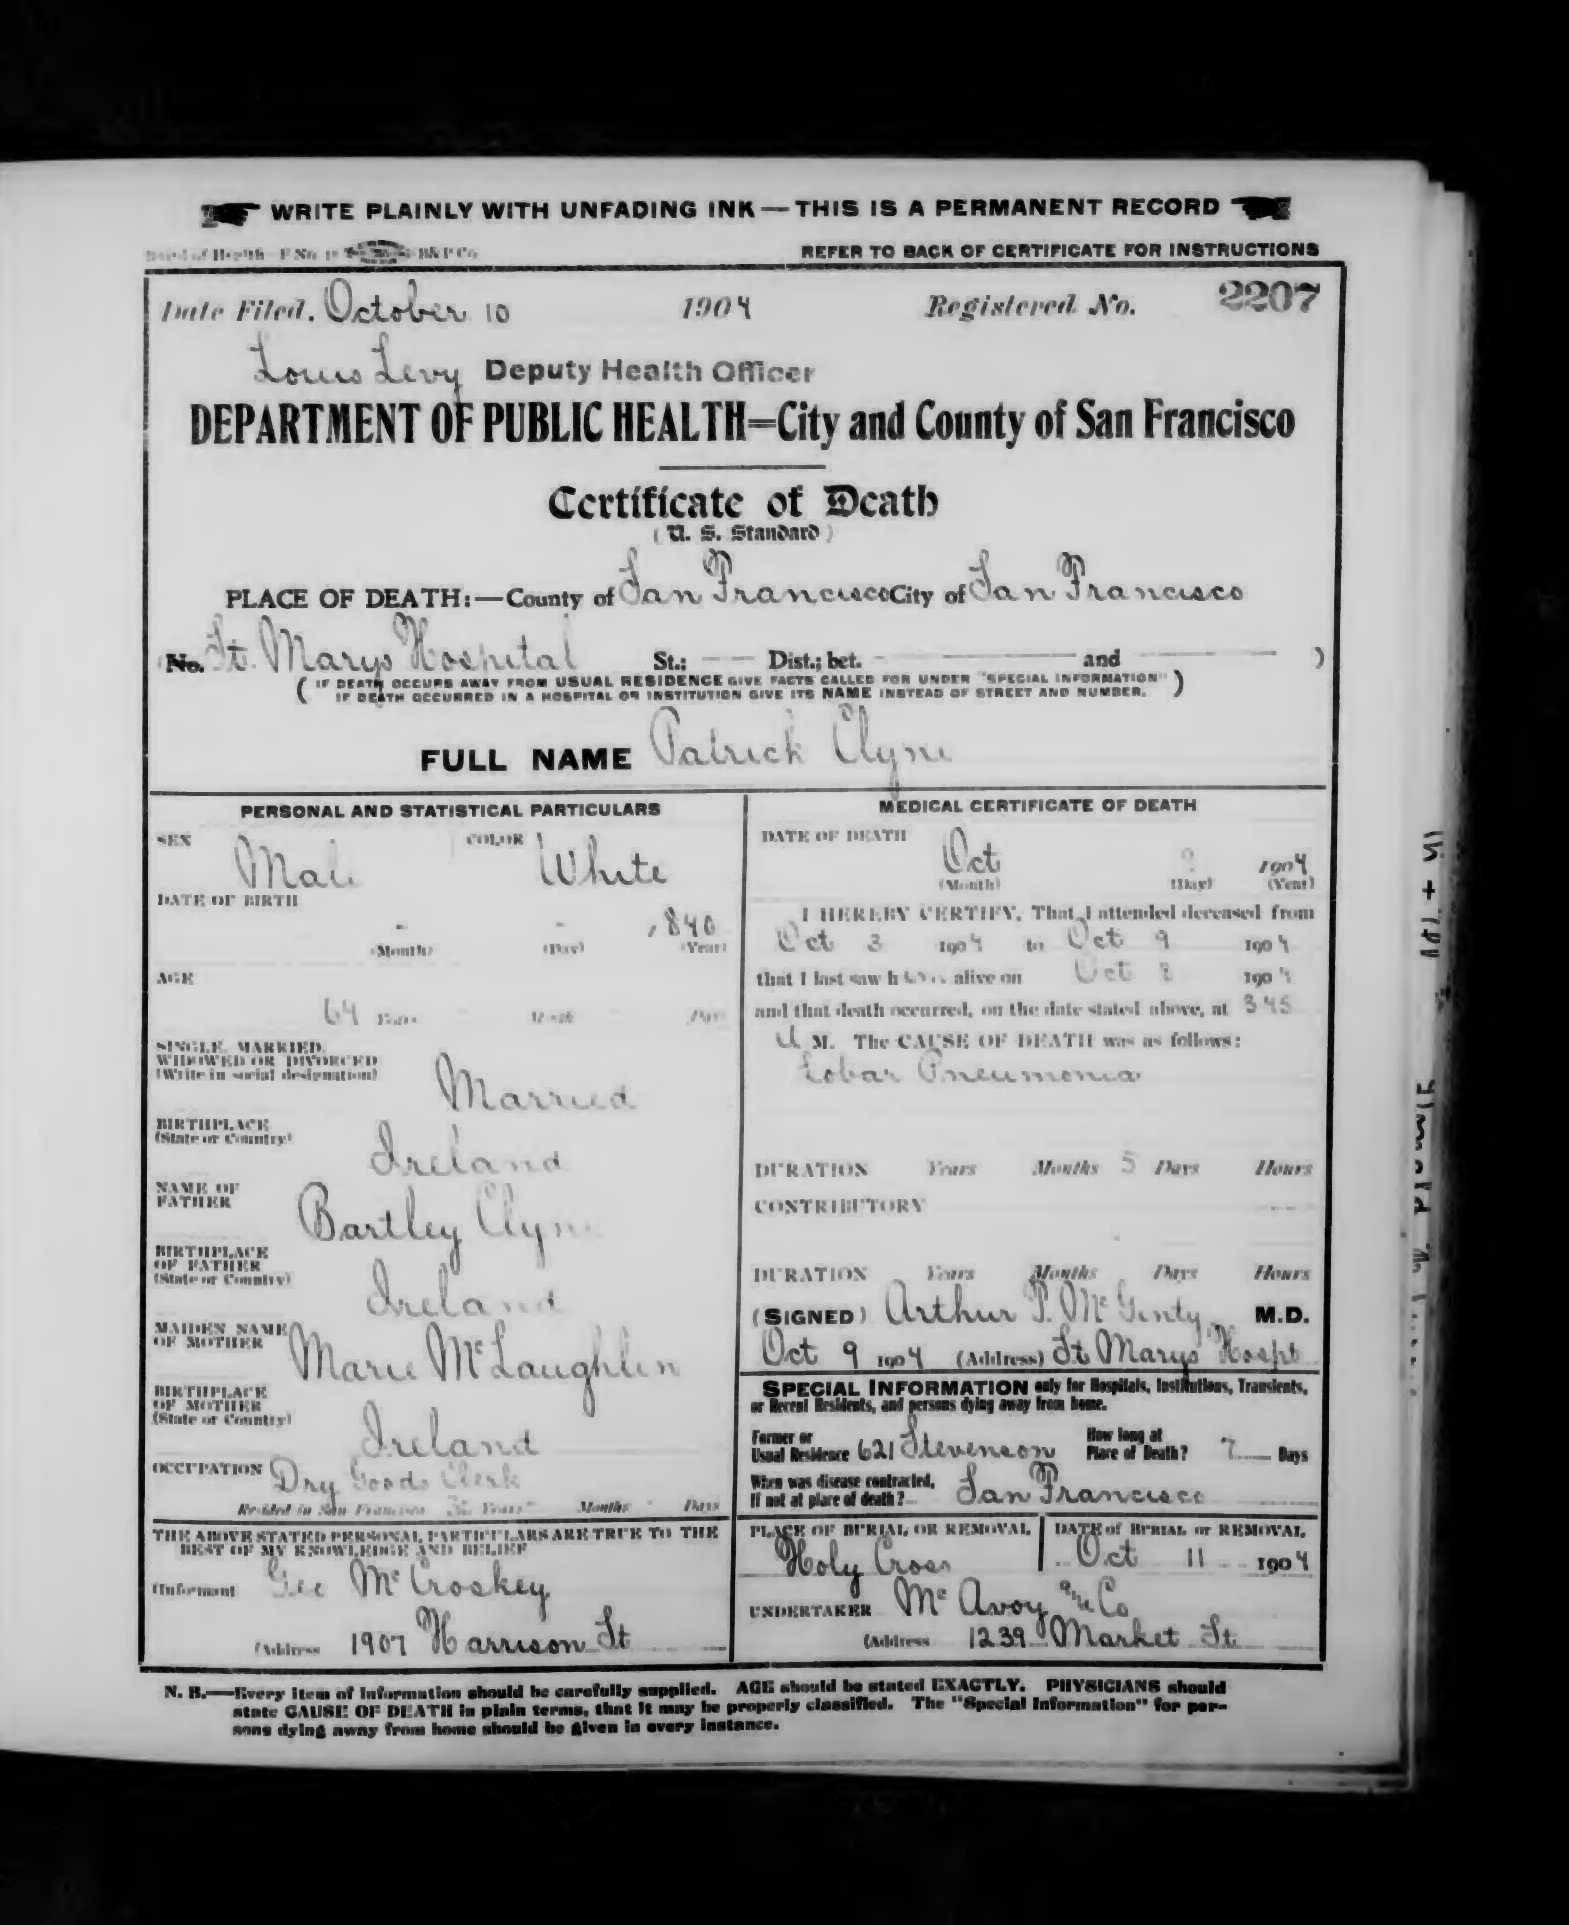 WRITE PLAINLY WITH UNFADING INK — THIS IS A PERMANENT RECORD
Board of Health F No B&P Co
REFER TO BACK OF CERTIFICATE FOR INSTRUCTIONS
Date Filed. October 10 1904 Registered No. 2207
Louis Levy Deputy Health Officer
DEPARTMENT OF PUBLIC HEALTH=City and County of San Francisco
Certificate of Death
(U. S. Standard)
PLACE OF DEATH:—County of San Francisco City of San Francisco
No. St. Marys Hospital St.; — Dist.; bet. — and — )
( IF DEATH OCCURS AWAY FROM USUAL RESIDENCE GIVE FACTS CALLED FOR UNDER "SPECIAL INFORMATION" )
IF DEATH OCCURRED IN A HOSPITAL OR INSTITUTION GIVE ITS NAME INSTEAD OF STREET AND NUMBER.
FULL NAME Patrick Clyne
PERSONAL AND STATISTICAL PARTICULARS
SEX Male COLOR White
DATE OF BIRTH
- - 1840
(Month) (Day) (Year)
AGE
64 Years Months Days
SINGLE, MARRIED,
WIDOWED OR DIVORCED
(Write in social designation)
Married
BIRTHPLACE
(State or Country)
Ireland
NAME OF
FATHER
Bartley Clyne
BIRTHPLACE
OF FATHER
(State or Country)
Ireland
MAIDEN NAME
OF MOTHER
Marie McLaughlin
BIRTHPLACE
OF MOTHER
(State or Country)
Ireland
OCCUPATION Dry Goods Clerk
Resided in San Francisco Years Months Days
THE ABOVE STATED PERSONAL PARTICULARS ARE TRUE TO THE
BEST OF MY KNOWLEDGE AND BELIEF
(Informant Geo McCroskey
(Address 1907 Harrison St
MEDICAL CERTIFICATE OF DEATH
DATE OF DEATH
Oct 1904
(Month) (Day) (Year)
I HEREBY CERTIFY, That I attended deceased from
Oct 3 1904 to Oct 9 1904
that I last saw him alive on Oct 8 1904
and that death occurred, on the date stated above, at 3 45
M. The CAUSE OF DEATH was as follows:
Lobar Pneumonia
DURATION Years Months 5 Days Hours
CONTRIBUTORY
DURATION Years Months Days Hours
(SIGNED) Arthur P. McGinty M.D.
Oct 9 1904 (Address) St Marys Hospt
SPECIAL INFORMATION only for Hospitals, Institutions, Transients,
or Recent Residents, and persons dying away from home.
Former or
Usual Residence 621 Stevenson
How long at
Place of Death? 7 Days
When was disease contracted,
If not at place of death? San Francisco
PLACE OF BURIAL OR REMOVAL
Holy Cross
DATE of BURIAL or REMOVAL
Oct 11 1904
UNDERTAKER McAvoy & Co
(Address 1239 Market St
N. B.—Every item of information should be carefully supplied. AGE should be stated EXACTLY. PHYSICIANS should
state CAUSE OF DEATH in plain terms, that it may be properly classified. The "Special Information" for per-
sons dying away from home should be given in every instance.